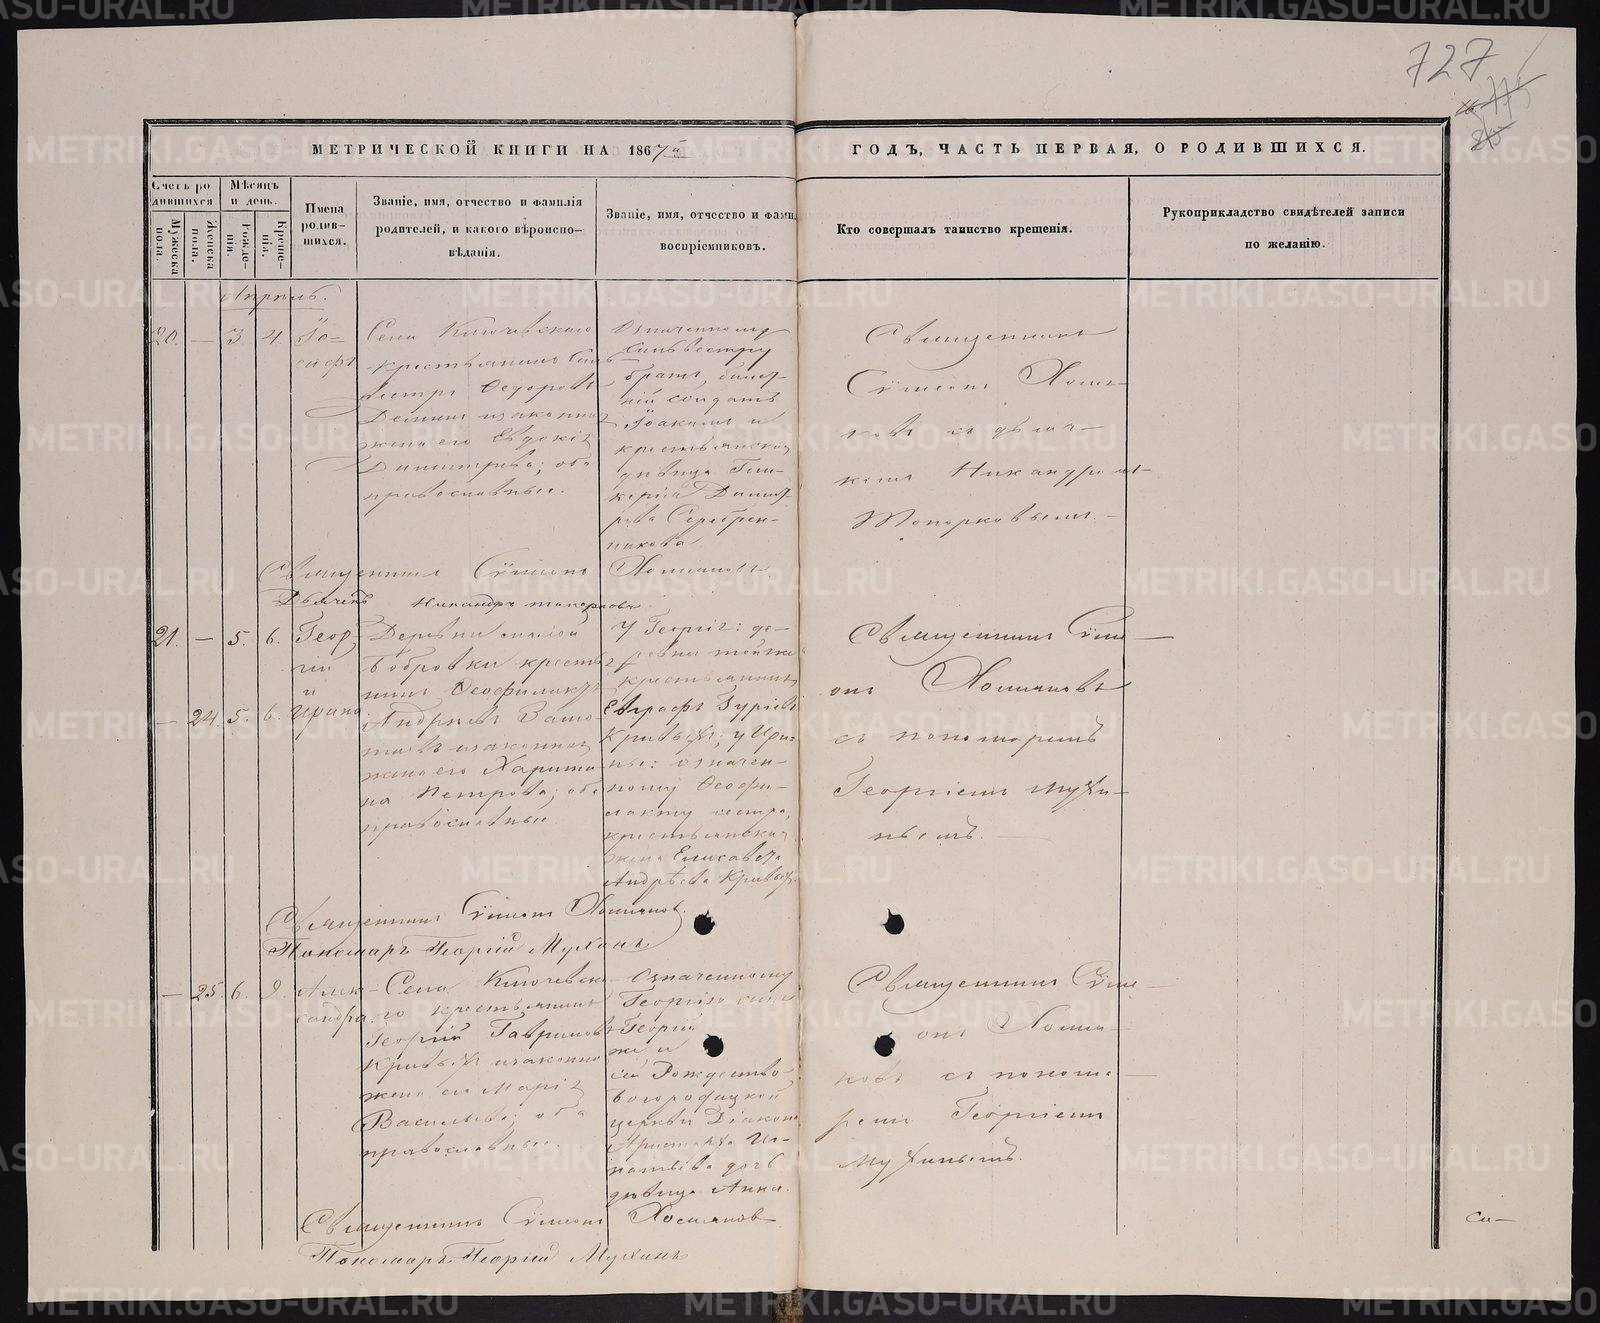 727
МЕТРИЧЕСКОЙ КНИГИ НА 1867й ГОДЪ, ЧАСТЬ ПЕРВАЯ, О РОДИВШИХСЯ.
Счетъ родившихся
Мужеска пола.
Женска пола.
Мѣсяцъ и день.
Рожденія.
Крещенія.
Имена родившихся.
Званіе, имя, отчество и фамилія
родителей, и какого вѣроиспо-
вѣданія.
Званіе, имя, отчество и фами
воспріемниковъ.
Кто совершалъ таинство крещенія.
Рукоприкладство свидѣтелей записи
по желанію.
Апрѣль.
20. — 3. 4.
Іо=
сифъ
Села Ключевскаго
крестьянинъ Силь
вестръ Ѳедоровъ
Деминъ и законная
жена его Евдокія
Димитріева; оба
православные.
Означенному
Сильвестру
братъ,
солдатъ
Іоакимъ и
крестьянская
дѣвица Гли-
керія Димит-
ріева Серебрен-
никова
Священникъ
Сѵмеонъ Хомя-
ковъ съ дьяч-
комъ Никандромъ
Топорковымъ.
Священникъ Сѵмеонъ Хомяковъ
Дьячекъ Никандръ Топорковъ
21. — 5. 6.
Геор
гій
и
— 24. 5. 6.
Ирина.
Деревни малой
Бобровки кресть
нинъ Ѳеофилактъ
Андреевъ
и законная
жена его Харити-
на Петрова; оба
православные
У Георгія: де-
ревни тойже
крестьянинъ
Евграфъ Гуріевъ
Кривыхъ; у Ири-
ны: означен-
ному Ѳеофи-
лакту сестра,
крестьянская
жена Елисавета
Андреева Кривыхъ.
Священникъ Сѵме-
онъ Хомяковъ
съ пономаремъ
Георгіемъ Мухи-
нымъ.
Священникъ Сѵмеонъ Хомяковъ.
Пономарь Георгій Мухинъ
— 25. 6. 9.
Алек-
сандра.
Села Ключевска-
го крестьянинъ
Георгій Гавриловъ
Кривыхъ и законная
жена его Марія
Васильева; оба
православные.
Означенному
Георгію сынъ
Георгій
же и
сей Рождество-
богородицкой
церкви Діакона
Аристарха Иг-
натьева дочь
дѣвица Анна.
Священникъ Сѵме-
онъ Хомя-
ковъ съ понома-
ремъ Георгіемъ
Мухинымъ.
Священникъ Сѵмеонъ Хомяковъ
Пономарь Георгій Мухинъ
METRIKI.GASO-URAL.RU